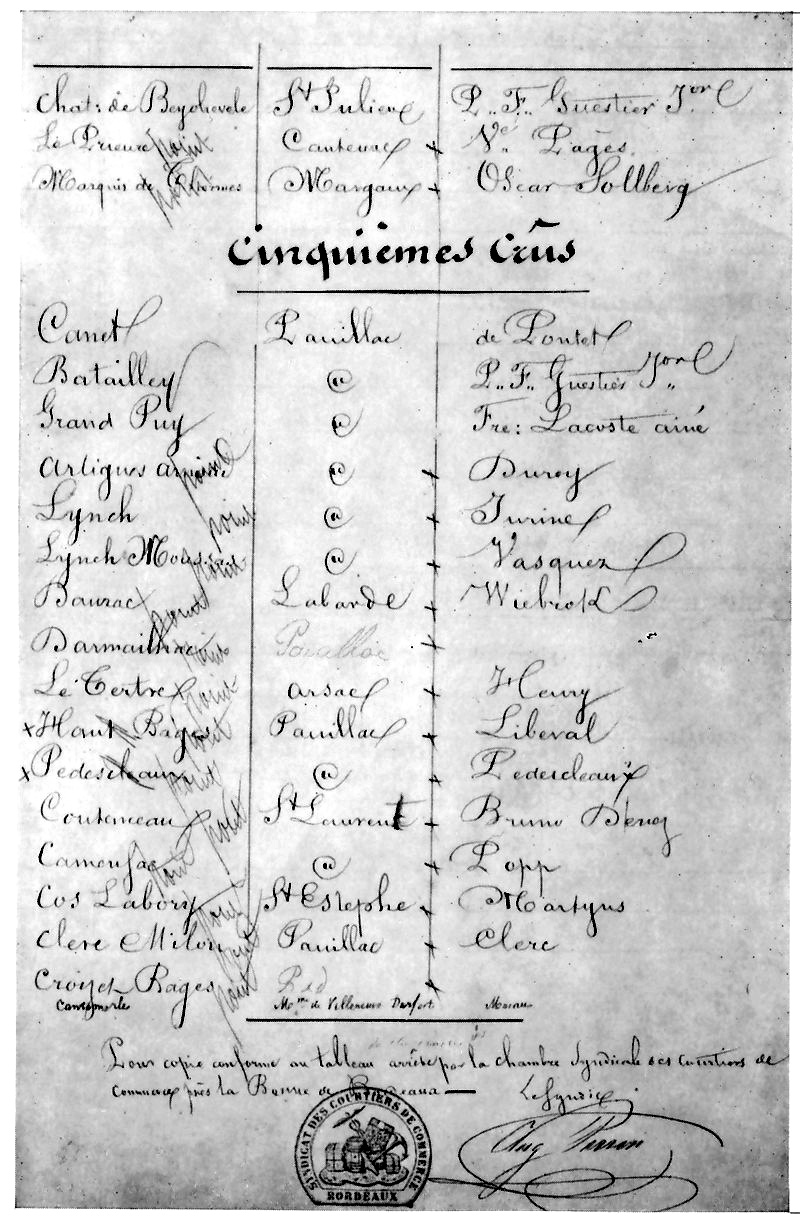 Chat: de Beychevele St Julien P.. F.. Guestier Jor
Le Prieuré point Cantenac x Ve. Pagès.
Marquis de Thermes point Margaux x Oscar Sollberg
Cinquièmes Crûs
Canet Pauillac de Pontet
Batailley @ P.. F.. Guestier Jor
Grand Puy @ Fre: Lacoste ainé
Artigues arnoux point @ x Duroy
Lynch point @ x Jurine
Lynch Moussas point @ x Vasquez
Bauzac point Labarde x Wiebrok
Darmailhac point Pauillac x
Le Tertre point Arsac x Henry
x Haut Bages point Pauillac x Libéral
x Pedescleaux point @ x Pedescleaux
Coutenceau point St Laurent x Bruno Devez
Camensac point @ x Popp
Cos Labory point St Estephe x Martyns
Clerc Milon point Pauillac x Clerc
Croizet Bages point x
Cantemerle Mme de Villeneuve Durfort Macau
Pour copie conforme au tableau arrêté par la chambre Syndicale des courtiers de
Commerce près la Bourse de Bordeaux — Le Syndic
SYNDICAT DES COURTIERS DE COMMERCE
BORDEAUX